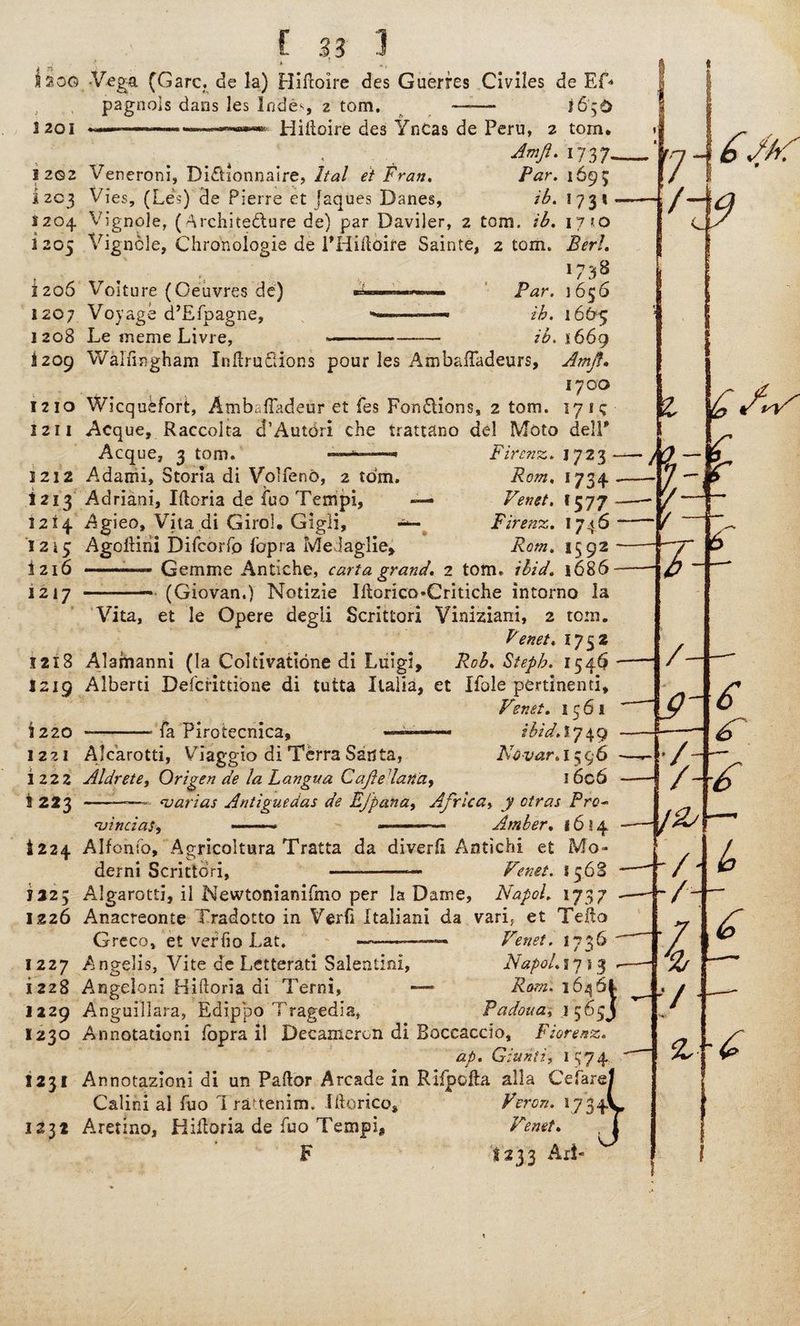 [ 33 ]
1200 Vega (Garc. de la) Hiſtoire des Guerres Civiles de Eſ-
pagnols dans les Indes, 2 tom. —— 1650
1201 —— Hiſtoire des Yncas de Peru, 2 tom.
Amſt. 1737
1202 Veneroni, Dictionnaire, Ital et Fran. Par. 1695
1203 Vies, (Les) de Pierre et Jaques Danes, ib. 1731
1204 Vignole, (Architecture de) par Daviler, 2 tom. ib. 1710
1205 Vignole, Chronologie de l'Hiſtoire Sainte, 2 tom. Berl.
1738
1206 Voiture (Oeuvres de) —— Par. 1656
1207 Voyage d'Eſpagne, —— ib. 1665
1208 Le meme Livre, —— ib. 1669
1209 Walſingham Inſtructions pour les Ambaſſadeurs, Amſt.
1700
1210 Wicquefort, Ambaſſadeur et ſes Fonctions, 2 tom. 1715
1211 Acque, Raccolta d'Autori che trattano del Moto dell'
Acque, 3 tom. —— Firenz. 1723
1212 Adami, Storia di Volſeno, 2 tom. Rom. 1734
1213 Adriani, Iſtoria de ſuo Tempi, — Venet. 1577
1214 Agieo, Vita di Girol. Gigli, — Firenz. 1746
1215 Agoſtini Diſcorſo ſopra Medaglie, Rom. 1592
1216 —— Gemme Antiche, carta grand. 2 tom. ibid. 1686
1217 —— (Giovan.) Notizie Iſtorico-Critiche intorno la
Vita, et le Opere degli Scrittori Viniziani, 2 tom.
Venet. 1752
1218 Alamanni (la Coltivatione di Luigi, Rob. Steph. 1546
1219 Alberti Deſcrittione di tutta Italia, et Iſole pertinenti,
Venet. 1561
1220 —— ſa Pirotecnica, —— ibid. 1749
1221 Alcarotti, Viaggio di Terra Santa, Novar. 1596
1222 Aldrete, Origen de la Langua Caſtellana, 1606
1223 —— varias Antiguedas de Eſpana, Africa, y otras Pro-
vincias, —— —— Amber. 1614
1224 Alfonſo, Agricoltura Tratta da diverſi Antichi et Mo-
derni Scrittori, —— Venet. 1568
1225 Algarotti, il Newtonianiſmo per la Dame, Napol. 1737
1226 Anacreonte Tradotto in Verſi Italiani da vari, et Teſto
Greco, et verſio Lat. —— Venet. 1736
1227 Angelis, Vite de Letterati Salentini, Napol. 1713
1228 Angeloni Hiſtoria di Terni, — Rom. 1646
1229 Anguillara, Edippo Tragedia, Padoua, 1565
1230 Annotationi ſopra il Decameron di Boccaccio, Fiorenz.
ap. Giunti, 1574
1231 Annotazioni di un Paſtor Arcade in Riſpoſta alla Ceſare
Calini al ſuo Trattenim. Iſtorico, Veron. 1734
1232 Aretino, Hiſtoria de ſuo Tempi, Venet.
F 1233 Ari-